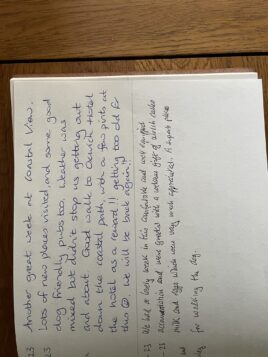 23
Another great week at Coastal View.
Lots of new places visited, and some good
dog friendly pubs too. Weather was
mixed but didn't stop us getting out
and about. Good walk to Berwick Hotel
down the coastal path with a few pints at
the hotel as a reward!! getting too old for
this. We will be back again!!
- 23
We had a lovely week in this comfortable and well equipped
accommodation and were greeted with a welcome gift of cakes
milk and eggs which were very much appreciated. A superb place
for walking the dog.